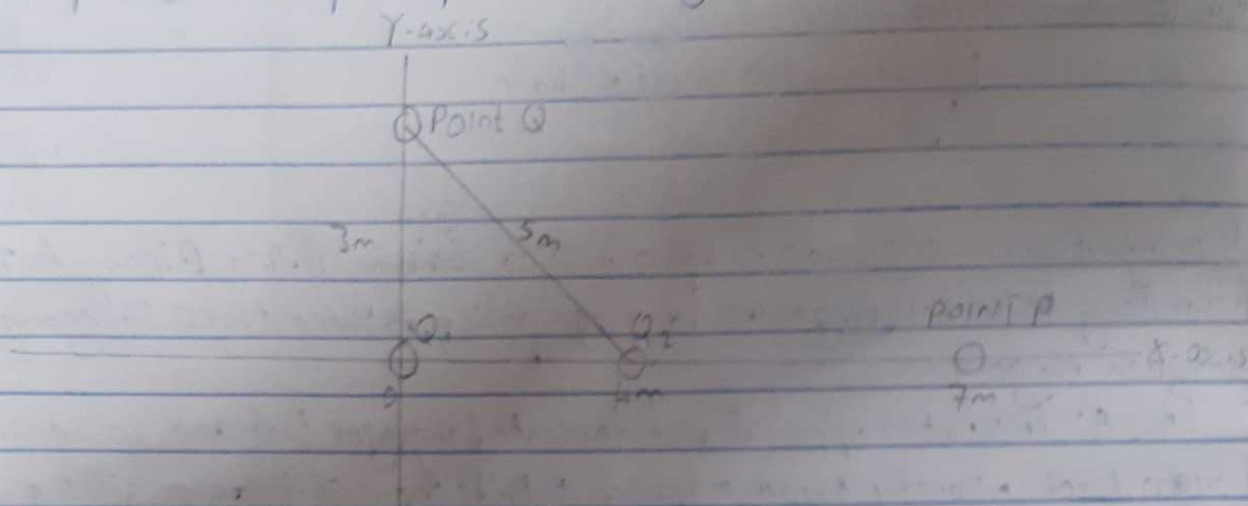 Y-axis
Point Q
3m
5m
Q1
Q2
point p
X-axis
0
4m
7m